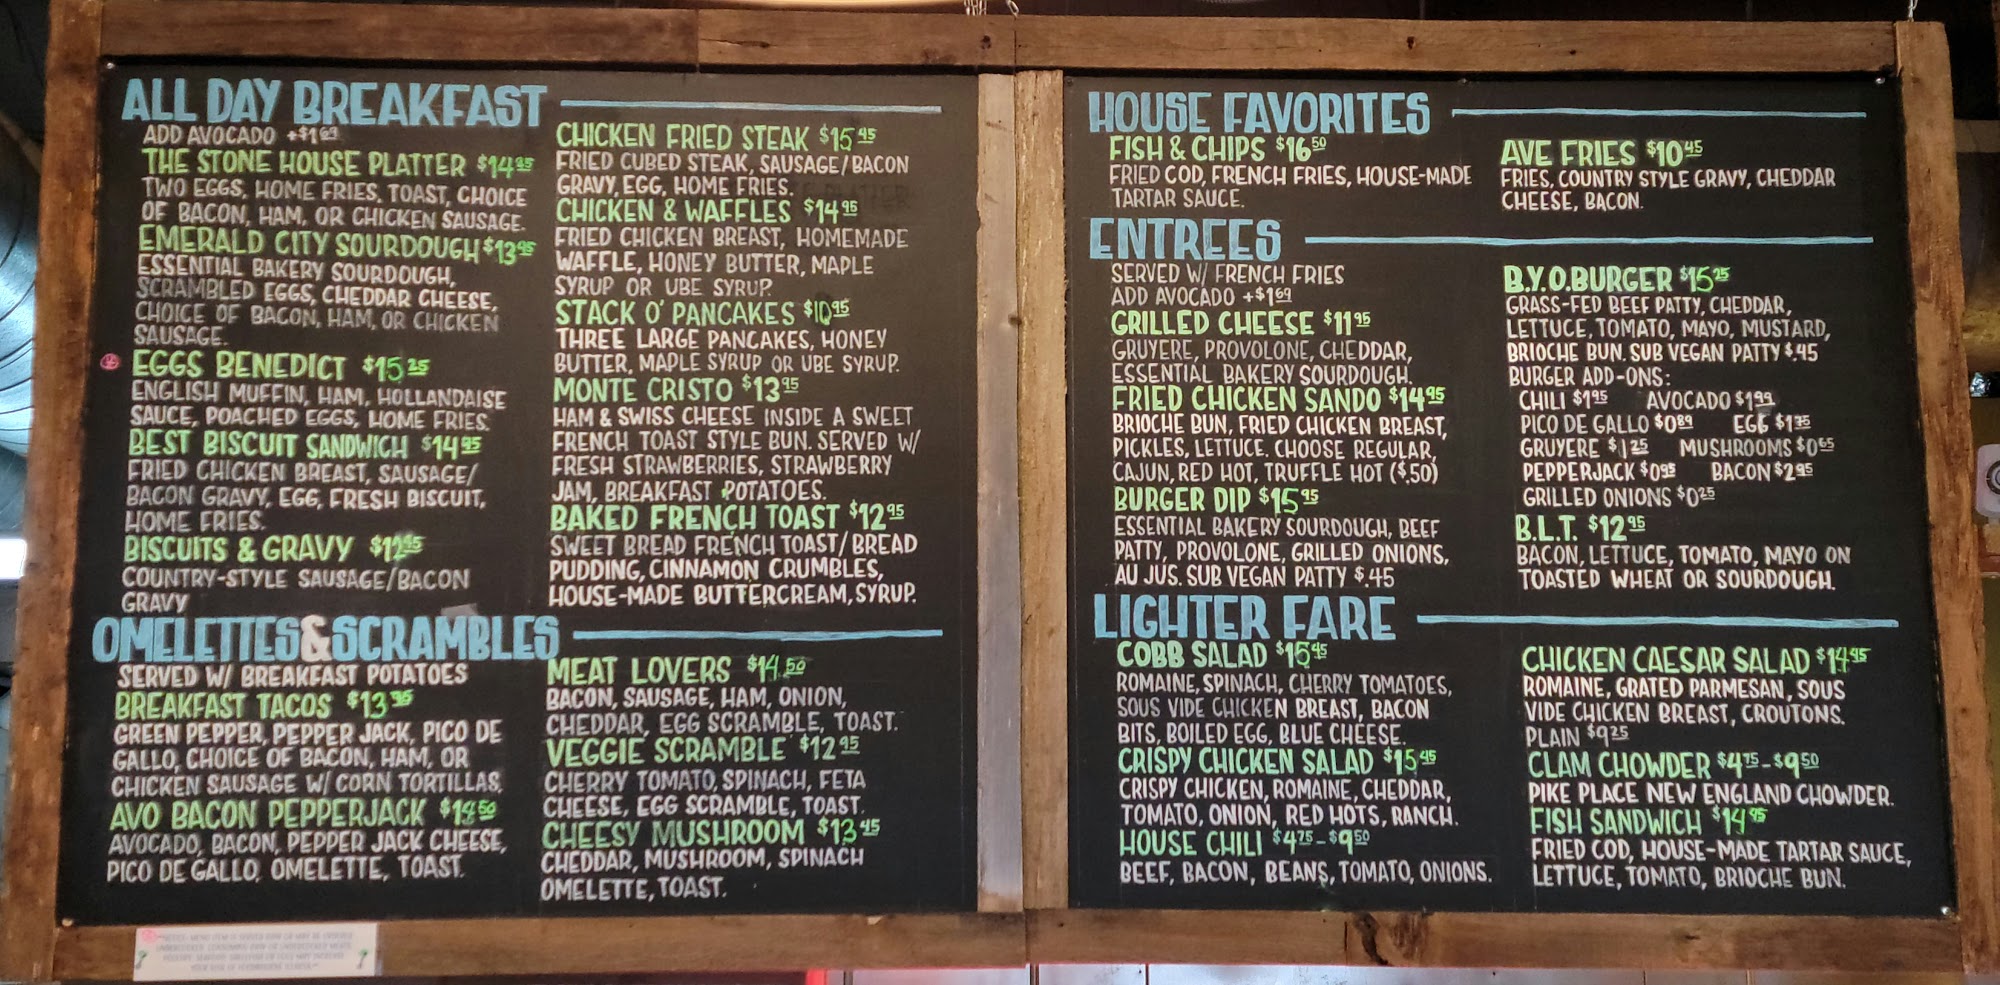 ALL DAY BREAKFAST
ADD AVOCADO +$1.69
THE STONE HOUSE PLATTER $14.95
TWO EGGS, HOME FRIES, TOAST, CHOICE
OF BACON, HAM, OR CHICKEN SAUSAGE.
EMERALD CITY SOURDOUGH $13.95
ESSENTIAL BAKERY SOURDOUGH,
SCRAMBLED EGGS, CHEDDAR CHEESE,
CHOICE OF BACON, HAM, OR CHICKEN
SAUSAGE.
EGGS BENEDICT $15.25
ENGLISH MUFFIN, HAM, HOLLANDAISE
SAUCE, POACHED EGGS, HOME FRIES.
BEST BISCUIT SANDWICH $14.95
FRIED CHICKEN BREAST, SAUSAGE/
BACON GRAVY, EGG, FRESH BISCUIT,
HOME FRIES.
BISCUITS & GRAVY $12.45
COUNTRY-STYLE SAUSAGE/BACON
GRAVY
CHICKEN FRIED STEAK $15.45
FRIED CUBED STEAK, SAUSAGE/BACON
GRAVY, EGG, HOME FRIES.
CHICKEN & WAFFLES $14.95
FRIED CHICKEN BREAST, HOMEMADE
WAFFLE, HONEY BUTTER, MAPLE
SYRUP OR UBE SYRUP.
STACK O' PANCAKES $10.95
THREE LARGE PANCAKES, HONEY
BUTTER, MAPLE SYRUP OR UBE SYRUP.
MONTE CRISTO $13.95
HAM & SWISS CHEESE INSIDE A SWEET
FRENCH TOAST STYLE BUN. SERVED W/
FRESH STRAWBERRIES, STRAWBERRY
JAM, BREAKFAST POTATOES.
BAKED FRENCH TOAST $12.95
SWEET BREAD FRENCH TOAST/BREAD
PUDDING, CINNAMON CRUMBLES,
HOUSE-MADE BUTTERCREAM, SYRUP.
OMELETTES & SCRAMBLES
SERVED W/ BREAKFAST POTATOES
BREAKFAST TACOS $13.95
GREEN PEPPER, PEPPER JACK, PICO DE
GALLO, CHOICE OF BACON, HAM, OR
CHICKEN SAUSAGE W/ CORN TORTILLAS.
AVO BACON PEPPERJACK $14.50
AVOCADO, BACON, PEPPER JACK CHEESE,
PICO DE GALLO, OMELETTE, TOAST.
MEAT LOVERS $14.50
BACON, SAUSAGE, HAM, ONION,
CHEDDAR, EGG SCRAMBLE, TOAST.
VEGGIE SCRAMBLE $12.95
CHERRY TOMATO, SPINACH, FETA
CHEESE, EGG SCRAMBLE, TOAST.
CHEESY MUSHROOM $13.45
CHEDDAR, MUSHROOM, SPINACH
OMELETTE, TOAST.
HOUSE FAVORITES
FISH & CHIPS $16.50
FRIED COD, FRENCH FRIES, HOUSE-MADE
TARTAR SAUCE.
AVE FRIES $10.45
FRIES, COUNTRY STYLE GRAVY, CHEDDAR
CHEESE, BACON.
ENTREES
SERVED W/ FRENCH FRIES
ADD AVOCADO +$1.69
GRILLED CHEESE $11.95
GRUYERE, PROVOLONE, CHEDDAR,
ESSENTIAL BAKERY SOURDOUGH.
FRIED CHICKEN SANDO $14.95
BRIOCHE BUN, FRIED CHICKEN BREAST,
PICKLES, LETTUCE. CHOOSE REGULAR,
CAJUN, RED HOT, TRUFFLE HOT ($.50)
BURGER DIP $15.95
ESSENTIAL BAKERY SOURDOUGH, BEEF
PATTY, PROVOLONE, GRILLED ONIONS,
AU JUS. SUB VEGAN PATTY $.45
B.Y.O.BURGER $15.25
GRASS-FED BEEF PATTY, CHEDDAR,
LETTUCE, TOMATO, MAYO, MUSTARD,
BRIOCHE BUN. SUB VEGAN PATTY $.45
BURGER ADD-ONS:
CHILI $1.95 AVOCADO $1.99
PICO DE GALLO $0.89 EGG $1.75
GRUYERE $1.25 MUSHROOMS $0.65
PEPPERJACK $0.95 BACON $2.95
GRILLED ONIONS $0.25
B.L.T. $12.95
BACON, LETTUCE, TOMATO, MAYO ON
TOASTED WHEAT OR SOURDOUGH.
LIGHTER FARE
COBB SALAD $15.45
ROMAINE, SPINACH, CHERRY TOMATOES,
SOUS VIDE CHICKEN BREAST, BACON
BITS, BOILED EGG, BLUE CHEESE.
CRISPY CHICKEN SALAD $15.45
CRISPY CHICKEN, ROMAINE, CHEDDAR,
TOMATO, ONION, RED HOTS, RANCH.
HOUSE CHILI $4.75-$9.50
BEEF, BACON, BEANS, TOMATO, ONIONS.
CHICKEN CAESAR SALAD $14.95
ROMAINE, GRATED PARMESAN, SOUS
VIDE CHICKEN BREAST, CROUTONS.
PLAIN $9.25
CLAM CHOWDER $4.75-$9.50
PIKE PLACE NEW ENGLAND CHOWDER.
FISH SANDWICH $14.95
FRIED COD, HOUSE-MADE TARTAR SAUCE,
LETTUCE, TOMATO, BRIOCHE BUN.